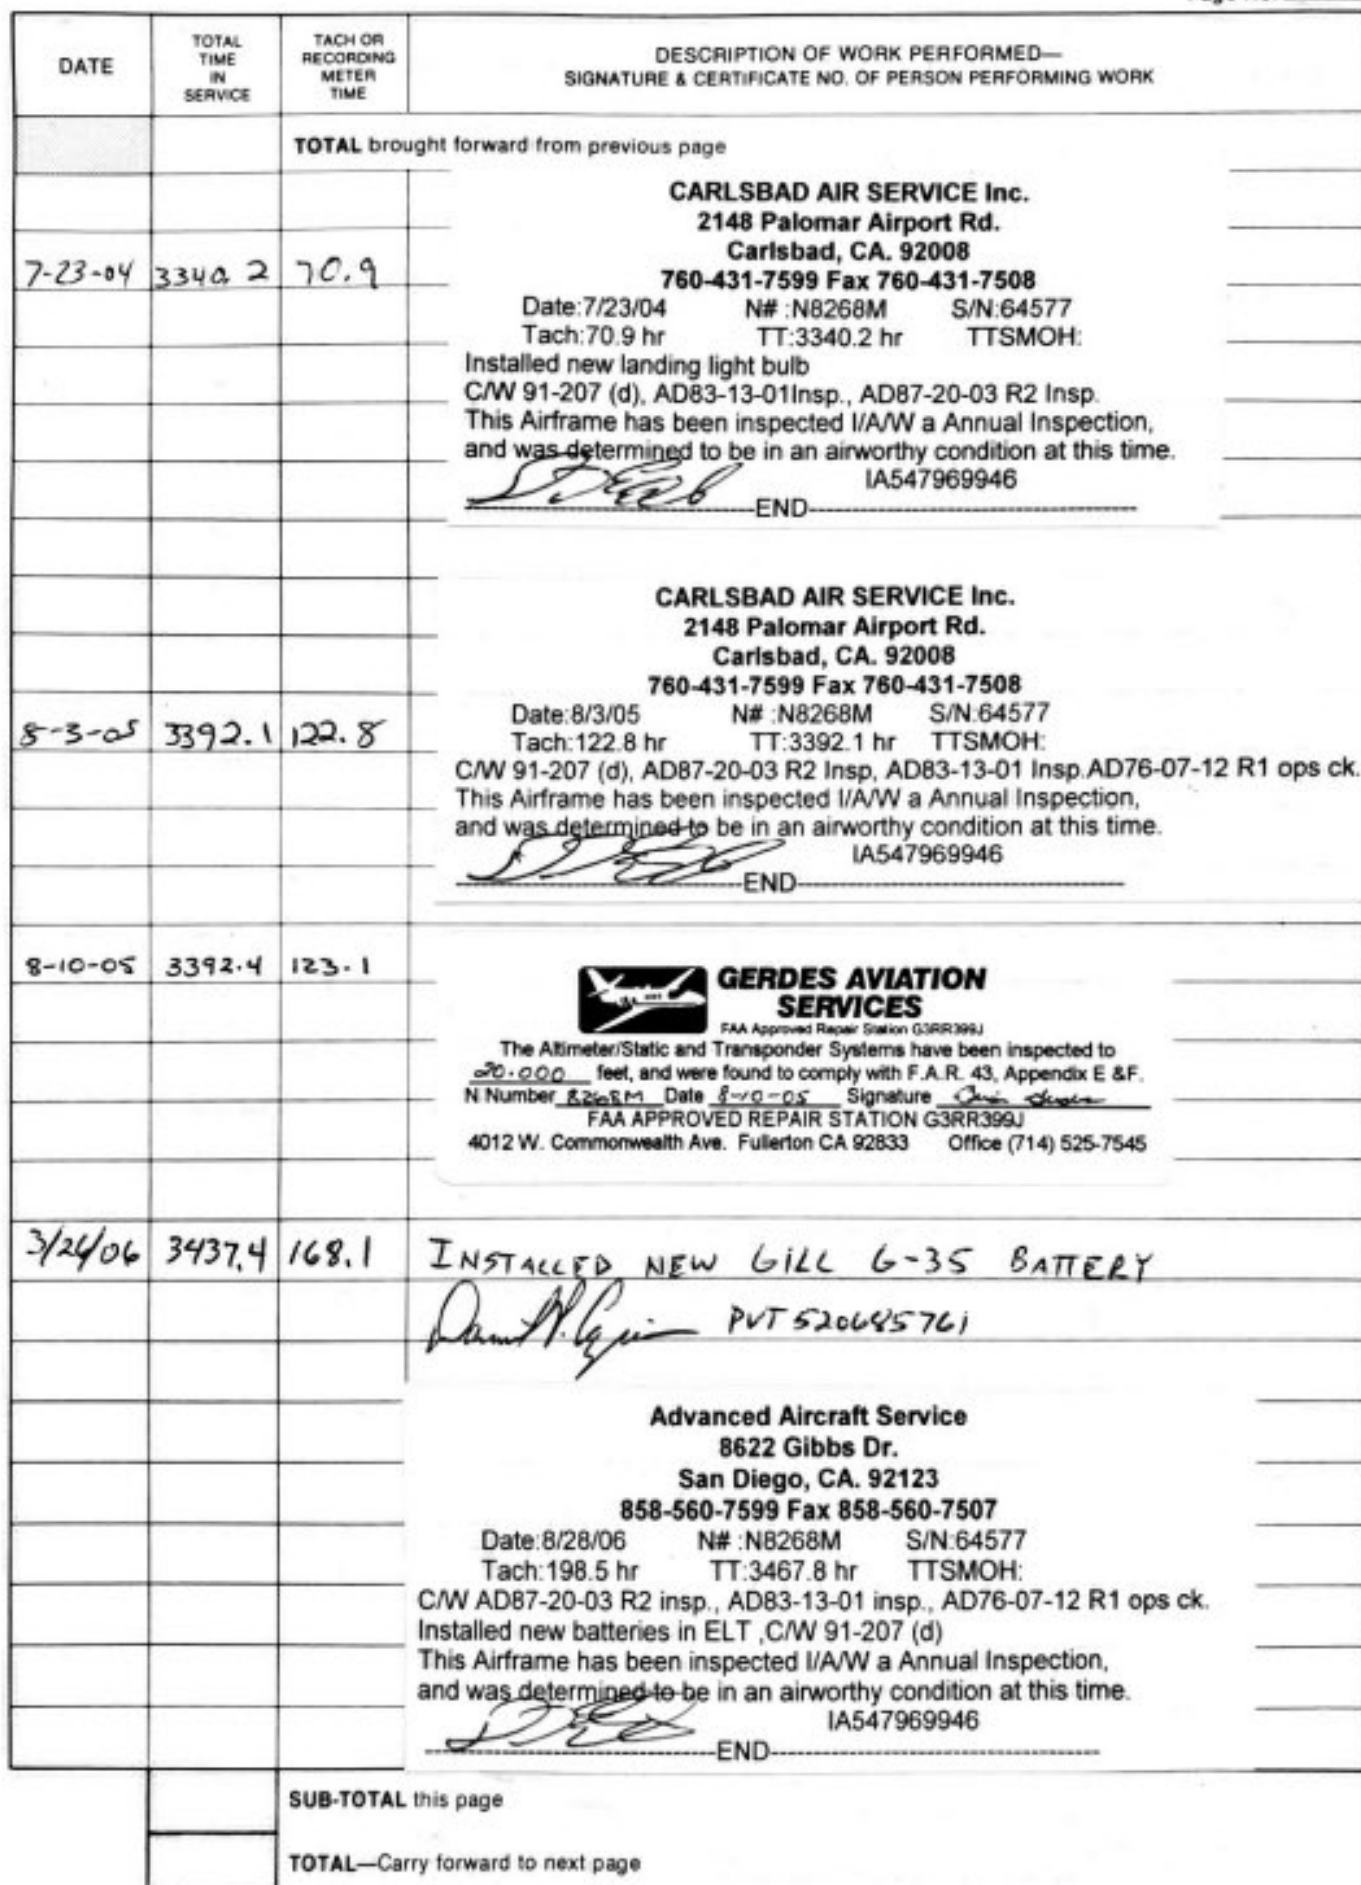 DATE
TOTAL TIME IN SERVICE
TACH OR RECORDING METER TIME
DESCRIPTION OF WORK PERFORMED—
SIGNATURE & CERTIFICATE NO. OF PERSON PERFORMING WORK
TOTAL brought forward from previous page
CARLSBAD AIR SERVICE Inc.
2148 Palomar Airport Rd.
Carlsbad, CA. 92008
760-431-7599 Fax 760-431-7508
7-23-04 3340.2 70.9
Date:7/23/04 N# :N8268M S/N:64577
Tach:70.9 hr TT:3340.2 hr TTSMOH:
Installed new landing light bulb
C/W 91-207 (d), AD83-13-01Insp., AD87-20-03 R2 Insp.
This Airframe has been inspected I/A/W a Annual Inspection,
and was determined to be in an airworthy condition at this time.
IA547969946
END
CARLSBAD AIR SERVICE Inc.
2148 Palomar Airport Rd.
Carlsbad, CA. 92008
760-431-7599 Fax 760-431-7508
8-3-05 3392.1 122.8
Date:8/3/05 N# :N8268M S/N:64577
Tach:122.8 hr TT:3392.1 hr TTSMOH:
C/W 91-207 (d), AD87-20-03 R2 Insp, AD83-13-01 Insp.AD76-07-12 R1 ops ck.
This Airframe has been inspected I/A/W a Annual Inspection,
and was determined to be in an airworthy condition at this time.
IA547969946
END
8-10-05 3392.4 123.1
GERDES AVIATION
SERVICES
FAA Approved Repair Station G3RR399J
The Altimeter/Static and Transponder Systems have been inspected to
20.000 feet, and were found to comply with F.A.R. 43, Appendix E &F.
N Number 8268M Date 8-10-05 Signature
FAA APPROVED REPAIR STATION G3RR399J
4012 W. Commonwealth Ave. Fullerton CA 92833 Office (714) 525-7545
3/26/06 3437.4 168.1 INSTALLED NEW GILL G-35 BATTERY
PVT 520685761
Advanced Aircraft Service
8622 Gibbs Dr.
San Diego, CA. 92123
858-560-7599 Fax 858-560-7507
Date:8/28/06 N# :N8268M S/N:64577
Tach:198.5 hr TT:3467.8 hr TTSMOH:
C/W AD87-20-03 R2 insp., AD83-13-01 insp., AD76-07-12 R1 ops ck.
Installed new batteries in ELT ,C/W 91-207 (d)
This Airframe has been inspected I/A/W a Annual Inspection,
and was determined to be in an airworthy condition at this time.
IA547969946
END
SUB-TOTAL this page
TOTAL—Carry forward to next page